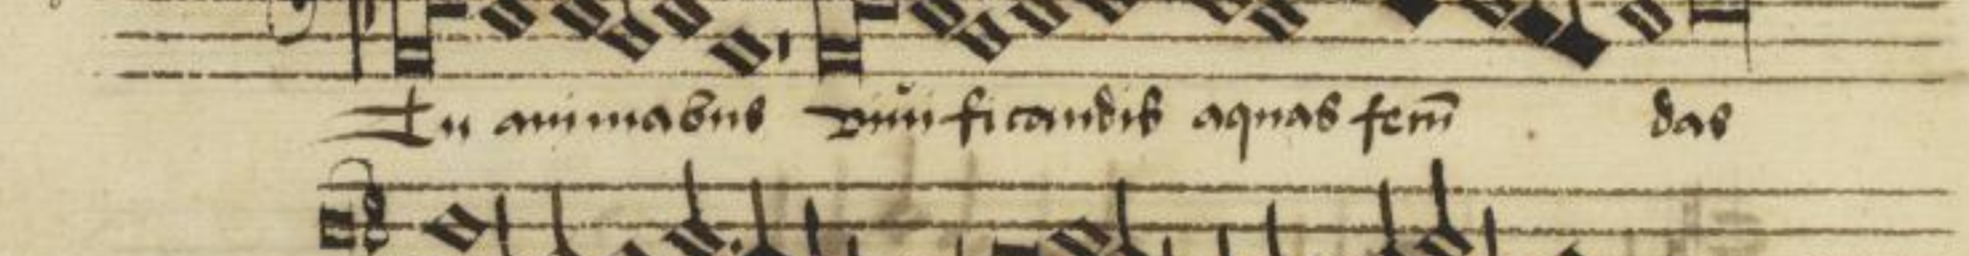 Tu animabus viuificandis aquas fecun das